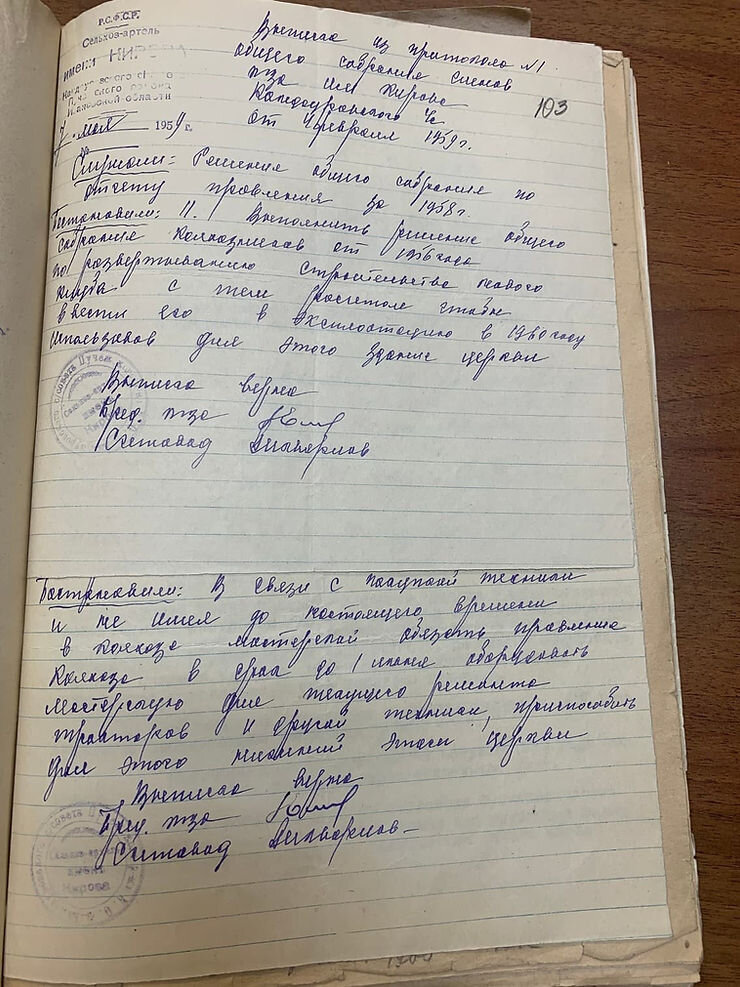 Р.С.Ф.С.Р.
Сельхоз-артель
имени КИРОВА
Ивановской области
7 мая 1959 г.
Выписка из протокола №1
общего собрания членов
к-за им. Кирова
Кандауровского с/с
от 4 февраля 1959 г.
103
Слушали: Решения общего собрания по
отчету правления за 1958 г.
Постановили: 11. Выполнить решение общего
собрания колхозников от 1956 года
по развертыванию строительства нового
клуба с тем расчетом чтобы
ввести его в эксплостацию в 1960 году
Использовав для этого здание церкви
Выписка верна
Пред. к-за
Счетовод
Постановили: В связи с покупкой техники
и не имея до настоящего времени
в колхозе мастерской обязать правление
колхоза в срок до 1 июня оборудовать
мастерскую для текущего ремонта
тракторов и другой техники, приспособить
для этого нижний этаж церкви
Выписка верна
Пред. к-за
Счетовод
имени
Кирова